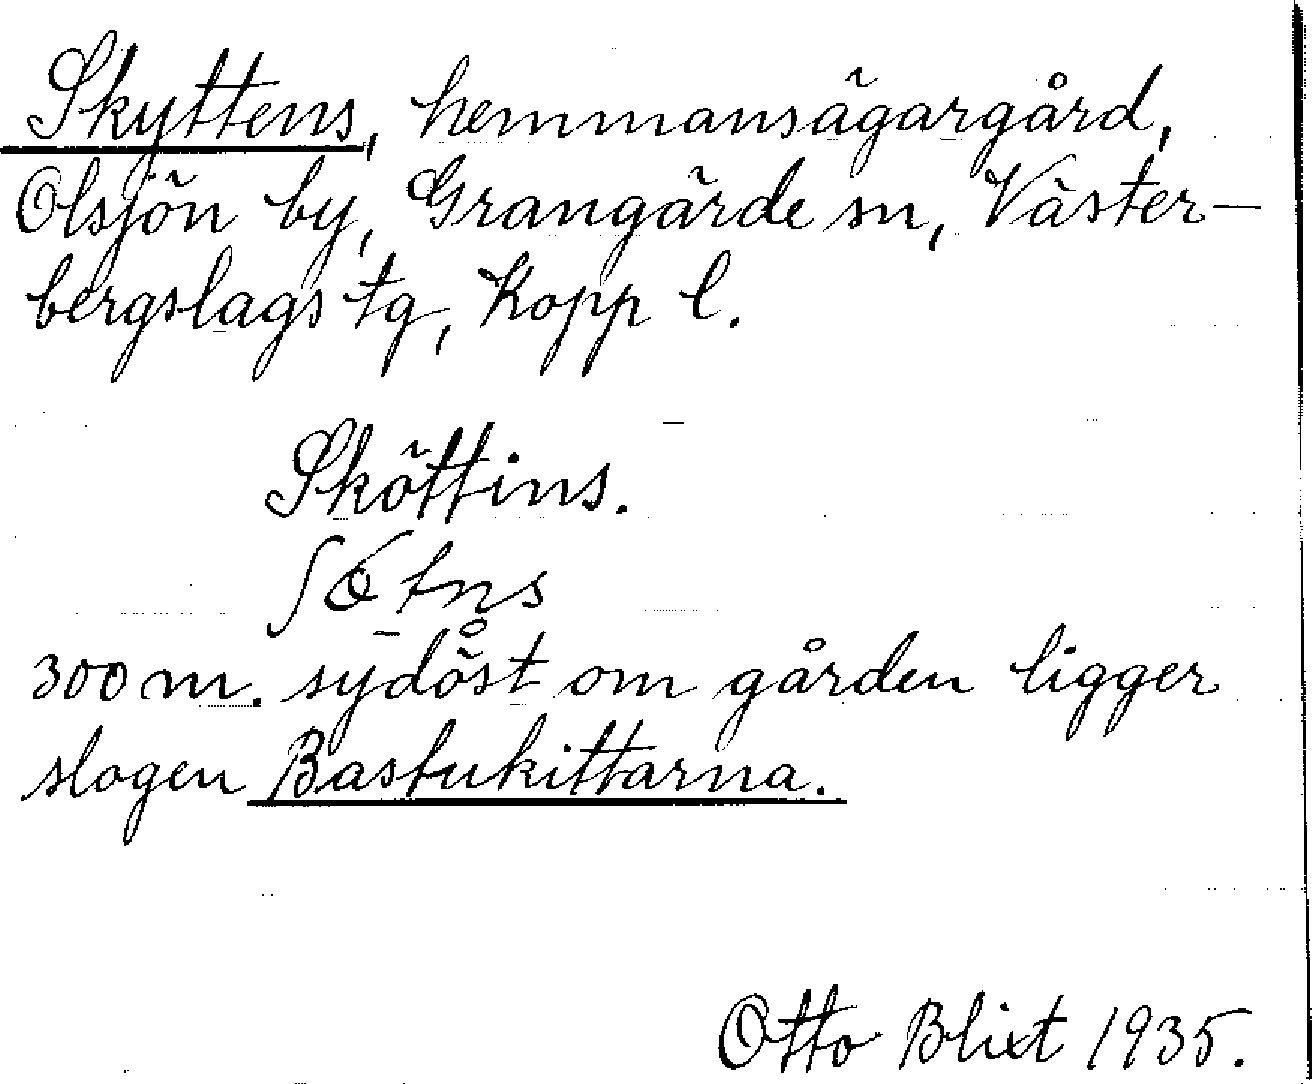 Skyttens, hemmansägargård,
Olsjön by, Grangärde sn, Väster-
bergslags tg, Kopp l.
Sköttins.
300 m. sydöst om gården ligger
slogen Bastukittarna.
Otto Blixt 1935.